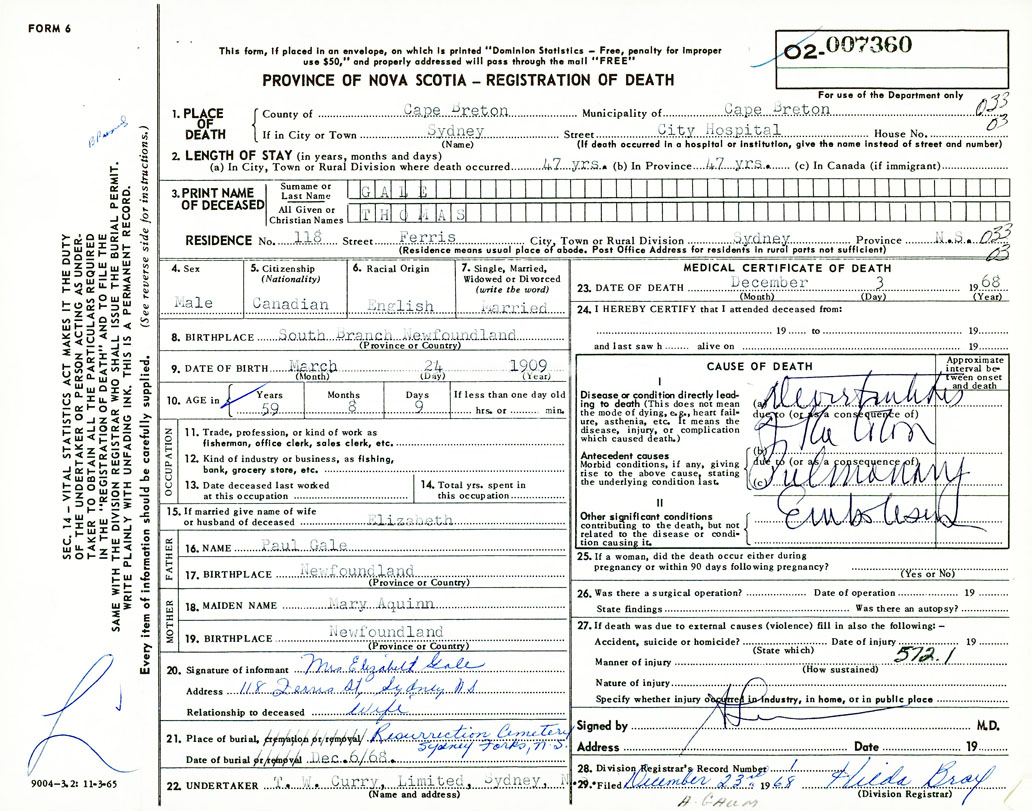 FORM 6
This form, if placed in an envelope, on which is printed "Dominion Statistics – Free, penalty for improper
use $50," and properly addressed will pass through the mail "FREE"
PROVINCE OF NOVA SCOTIA – REGISTRATION OF DEATH
02-007360
For use of the Department only
1. PLACE OF DEATH
County of Cape Breton Municipality of Cape Breton 033
If in City or Town Sydney Street City Hospital House No. 03
(Name) (If death occurred in a hospital or institution, give the name instead of street and number)
2. LENGTH OF STAY (in years, months and days)
(a) In City, Town or Rural Division where death occurred 47 yrs. (b) In Province 47 yrs. (c) In Canada (if immigrant)
3. PRINT NAME OF DECEASED
Surname or Last Name GALE
All Given or Christian Names THOMAS
RESIDENCE No. 118 Street Ferris City, Town or Rural Division Sydney Province N.S. 033
(Residence means usual place of abode. Post Office Address for residents in rural parts not sufficient) 03
4. Sex
Male
5. Citizenship
(Nationality)
Canadian
6. Racial Origin
English
7. Single, Married,
Widowed or Divorced
(write the word)
Married
8. BIRTHPLACE South Branch Newfoundland
(Province or Country)
9. DATE OF BIRTH March 24 1909
(Month) (Day) (Year)
10. AGE in
Years Months Days If less than one day old
59 8 9 hrs. or min.
OCCUPATION
11. Trade, profession, or kind of work as
fisherman, office clerk, sales clerk, etc.
12. Kind of industry or business, as fishing,
bank, grocery store, etc.
13. Date deceased last worked
at this occupation
14. Total yrs. spent in
this occupation
15. If married give name of wife
or husband of deceased Elizabeth
FATHER
16. NAME Paul Gale
17. BIRTHPLACE Newfoundland
(Province or Country)
MOTHER
18. MAIDEN NAME Mary Aquinn
19. BIRTHPLACE Newfoundland
(Province or Country)
20. Signature of informant Mrs Elizabet Gale
Address 118 Ferris St, Sydney N S
Relationship to deceased wife
21. Place of burial, cremation or removal Resurrection Cemetery
Sydney Forks, N.S.
Date of burial or removal Dec. 6/68.
22. UNDERTAKER T. W. Curry, Limited, Sydney, N
(Name and address)
MEDICAL CERTIFICATE OF DEATH
23. DATE OF DEATH December 3 1968
(Month) (Day) (Year)
24. I HEREBY CERTIFY that I attended deceased from:
19 to 19
and last saw h alive on 19
CAUSE OF DEATH
Approximate interval between onset and death
I
Disease or condition directly leading to death (This does not mean
the mode of dying, e.g., heart failure, asthenia, etc. It means the
disease, injury, or complication
which caused death.)
(a)
due to (or as a consequence of)
Antecedent causes
Morbid conditions, if any, giving
rise to the above cause, stating
the underlying condition last.
(b)
due to (or as a consequence of)
(c) Pulmonary
II
Other significant conditions
contributing to the death, but not
related to the disease or condition causing it.
Embolism
25. If a woman, did the death occur either during
pregnancy or within 90 days following pregnancy?
(Yes or No)
26. Was there a surgical operation? Date of operation 19
State findings Was there an autopsy?
27. If death was due to external causes (violence) fill in also the following: –
Accident, suicide or homicide? Date of injury 19
(State which)
572.1
Manner of injury
(How sustained)
Nature of injury
Specify whether injury occurred in industry, in home, or in public place
Signed by M.D.
Address Date 19
28. Division Registrar's Record Number 1
29. Filed December 23rd 1968 Hilda Bray
(Division Registrar)
SEC. 14 – VITAL STATISTICS ACT MAKES IT THE DUTY
OF THE UNDERTAKER OR PERSON ACTING AS UNDER-
TAKER TO OBTAIN ALL THE PARTICULARS REQUIRED
IN THE "REGISTRATION OF DEATH" AND TO FILE THE
SAME WITH THE DIVISION REGISTRAR WHO SHALL ISSUE THE BURIAL PERMIT.
WRITE PLAINLY WITH UNFADING INK. THIS IS A PERMANENT RECORD.
Every item of information should be carefully supplied. (See reverse side for instructions.)
9004–3.2: 11-3-65